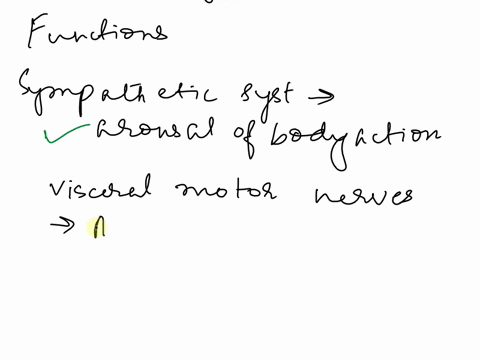 Functions
Sympathetic syst →
✓ arousal of body action
visceral motor nerves
→